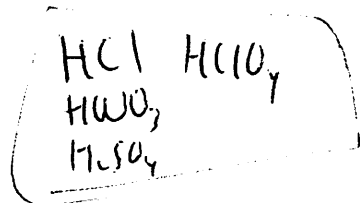 HCl HClO₄
HWO₃
H₂SO₄